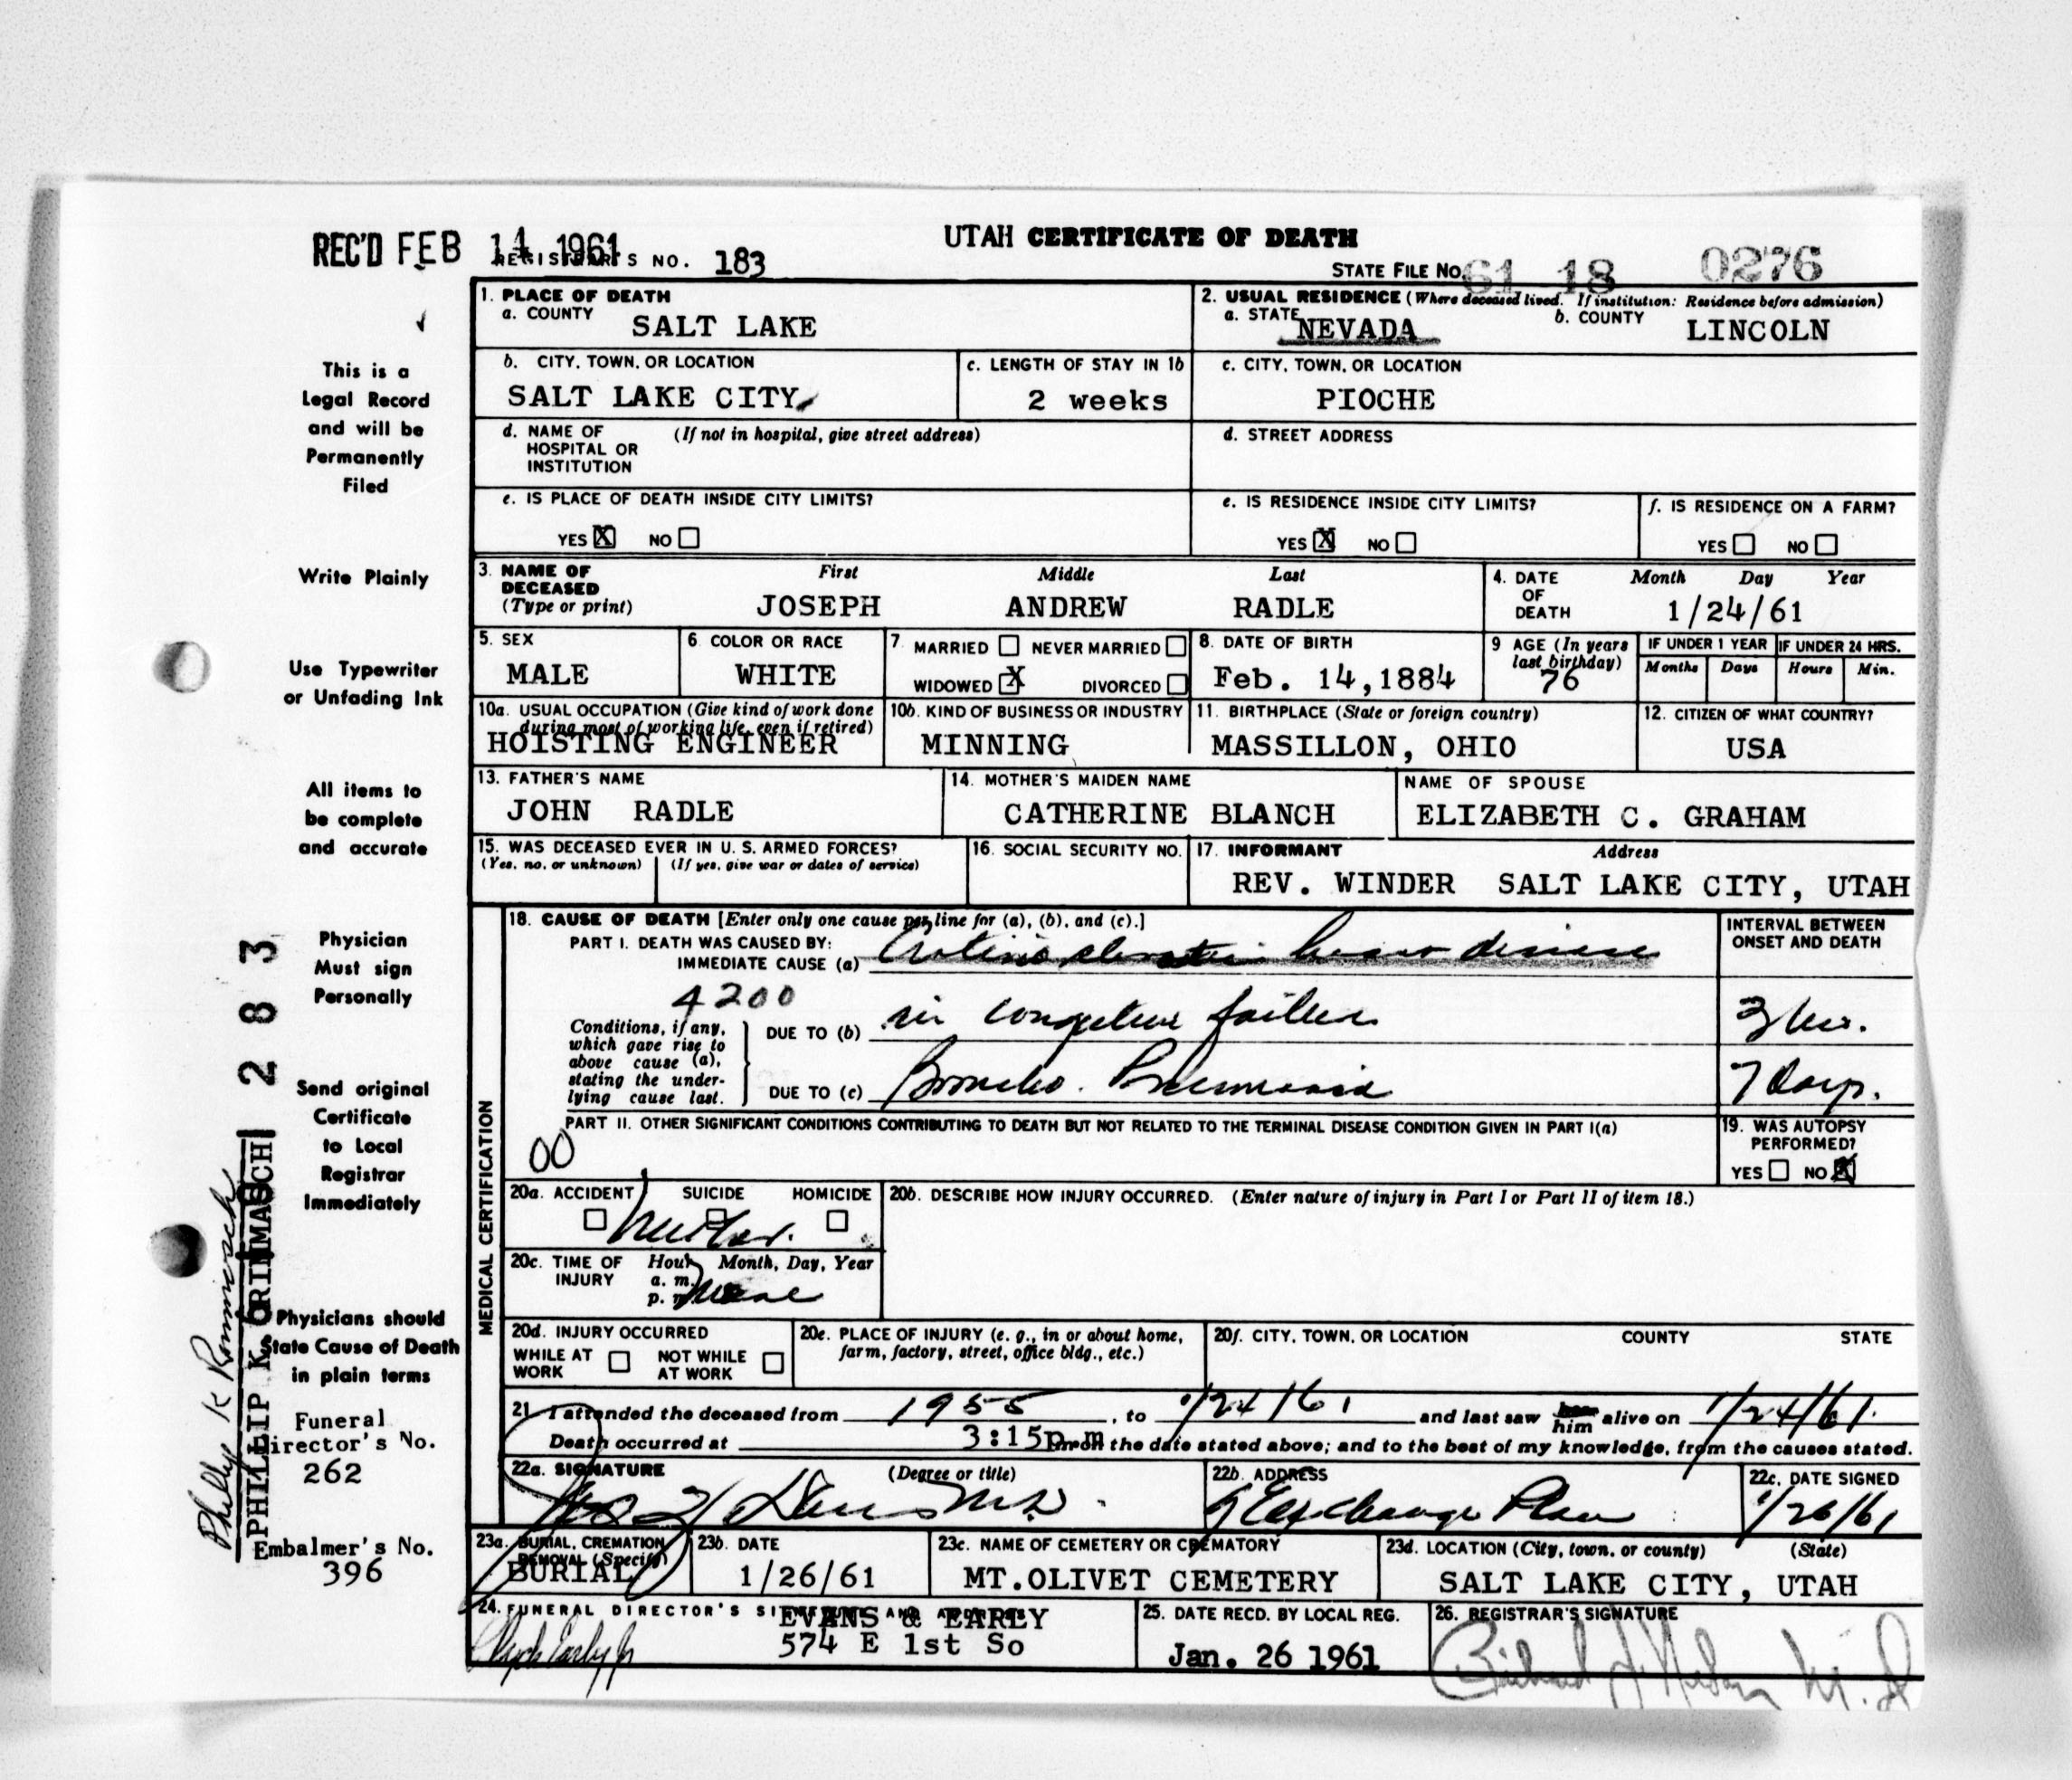 REC'D FEB 14 1961
REGISTRAR'S NO. 183
UTAH CERTIFICATE OF DEATH
STATE FILE No. 61 18 0276
This is a
Legal Record
and will be
Permanently
Filed
Write Plainly
Use Typewriter
or Unfading Ink
All items to
be complete
and accurate
Physician
Must sign
Personally
Send original
Certificate
to Local
Registrar
Immediately
Physicians should
State Cause of Death
in plain terms
Funeral
Director's No.
262
Embalmer's No.
396
283
PHILLIP K
1. PLACE OF DEATH
a. COUNTY SALT LAKE
b. CITY, TOWN, OR LOCATION
SALT LAKE CITY
c. LENGTH OF STAY IN 1b
2 weeks
d. NAME OF HOSPITAL OR INSTITUTION (If not in hospital, give street address)
e. IS PLACE OF DEATH INSIDE CITY LIMITS?
YES X NO
2. USUAL RESIDENCE (Where deceased lived. If institution: Residence before admission)
a. STATE NEVADA b. COUNTY LINCOLN
c. CITY, TOWN, OR LOCATION
PIOCHE
d. STREET ADDRESS
e. IS RESIDENCE INSIDE CITY LIMITS?
YES X NO
f. IS RESIDENCE ON A FARM?
YES NO
3. NAME OF DECEASED (Type or print)
First Middle Last
JOSEPH ANDREW RADLE
4. DATE OF DEATH Month Day Year
1/24/61
5. SEX
MALE
6 COLOR OR RACE
WHITE
7 MARRIED NEVER MARRIED
WIDOWED X DIVORCED
8. DATE OF BIRTH
Feb. 14,1884
9 AGE (In years last birthday)
76
IF UNDER 1 YEAR IF UNDER 24 HRS.
Months Days Hours Min.
10a. USUAL OCCUPATION (Give kind of work done during most of working life, even if retired)
HOISTING ENGINEER
10b. KIND OF BUSINESS OR INDUSTRY
MINNING
11. BIRTHPLACE (State or foreign country)
MASSILLON, OHIO
12. CITIZEN OF WHAT COUNTRY?
USA
13. FATHER'S NAME
JOHN RADLE
14. MOTHER'S MAIDEN NAME
CATHERINE BLANCH
NAME OF SPOUSE
ELIZABETH C. GRAHAM
15. WAS DECEASED EVER IN U. S. ARMED FORCES?
(Yes, no, or unknown) (If yes, give war or dates of service)
16. SOCIAL SECURITY NO.
17. INFORMANT Address
REV. WINDER SALT LAKE CITY, UTAH
MEDICAL CERTIFICATION
18. CAUSE OF DEATH [Enter only one cause per line for (a), (b), and (c).]
PART I. DEATH WAS CAUSED BY:
IMMEDIATE CAUSE (a) heart disease
4200
Conditions, if any, which gave rise to above cause (a), stating the underlying cause last.
DUE TO (b) in congestive failure
DUE TO (c) Broncho. Pneumonia
INTERVAL BETWEEN ONSET AND DEATH
7 days.
PART II. OTHER SIGNIFICANT CONDITIONS CONTRIBUTING TO DEATH BUT NOT RELATED TO THE TERMINAL DISEASE CONDITION GIVEN IN PART I(a)
00
19. WAS AUTOPSY PERFORMED?
YES NO X
20a. ACCIDENT SUICIDE HOMICIDE
20b. DESCRIBE HOW INJURY OCCURRED. (Enter nature of injury in Part I or Part II of item 18.)
20c. TIME OF INJURY Hour Month, Day, Year
a. m.
p. m. None
20d. INJURY OCCURRED
WHILE AT WORK NOT WHILE AT WORK
20e. PLACE OF INJURY (e. g., in or about home, farm, factory, street, office bldg., etc.)
20f. CITY, TOWN, OR LOCATION COUNTY STATE
21. I attended the deceased from 1955, to 1/24/61 and last saw him alive on 1/24/61.
Death occurred at 3:15p.m. on the date stated above; and to the best of my knowledge, from the causes stated.
22a. SIGNATURE (Degree or title)
M.D.
22b. ADDRESS
Exchange Place
22c. DATE SIGNED
1/26/61
23a. BURIAL, CREMATION REMOVAL (Specify)
BURIAL
23b. DATE
1/26/61
23c. NAME OF CEMETERY OR CREMATORY
MT.OLIVET CEMETERY
23d. LOCATION (City, town, or county) (State)
SALT LAKE CITY, UTAH
24. FUNERAL DIRECTOR'S SIGNATURE AND ADDRESS
EVANS & EARLY
574 E 1st So
25. DATE RECD. BY LOCAL REG.
Jan. 26 1961
26. REGISTRAR'S SIGNATURE